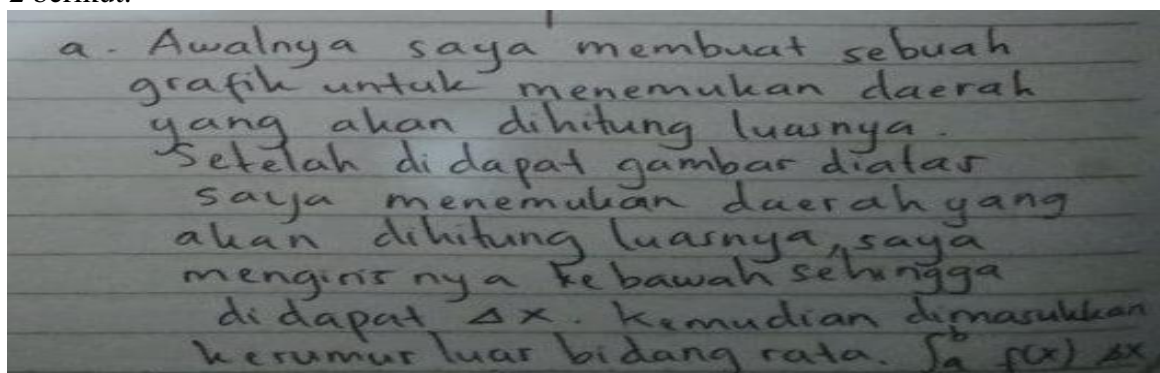 a. Awalnya saya membuat sebuah
grafik untuk menemukan daerah
yang akan dihitung luasnya.
Setelah didapat gambar diatas
saya menemukan daerah yang
akan dihitung luasnya, saya
mengirisnya kebawah sehingga
didapat Δx. Kemudian dimasukkan
kerumus luas bidang rata. ∫ₐᵇ f(x) Δx